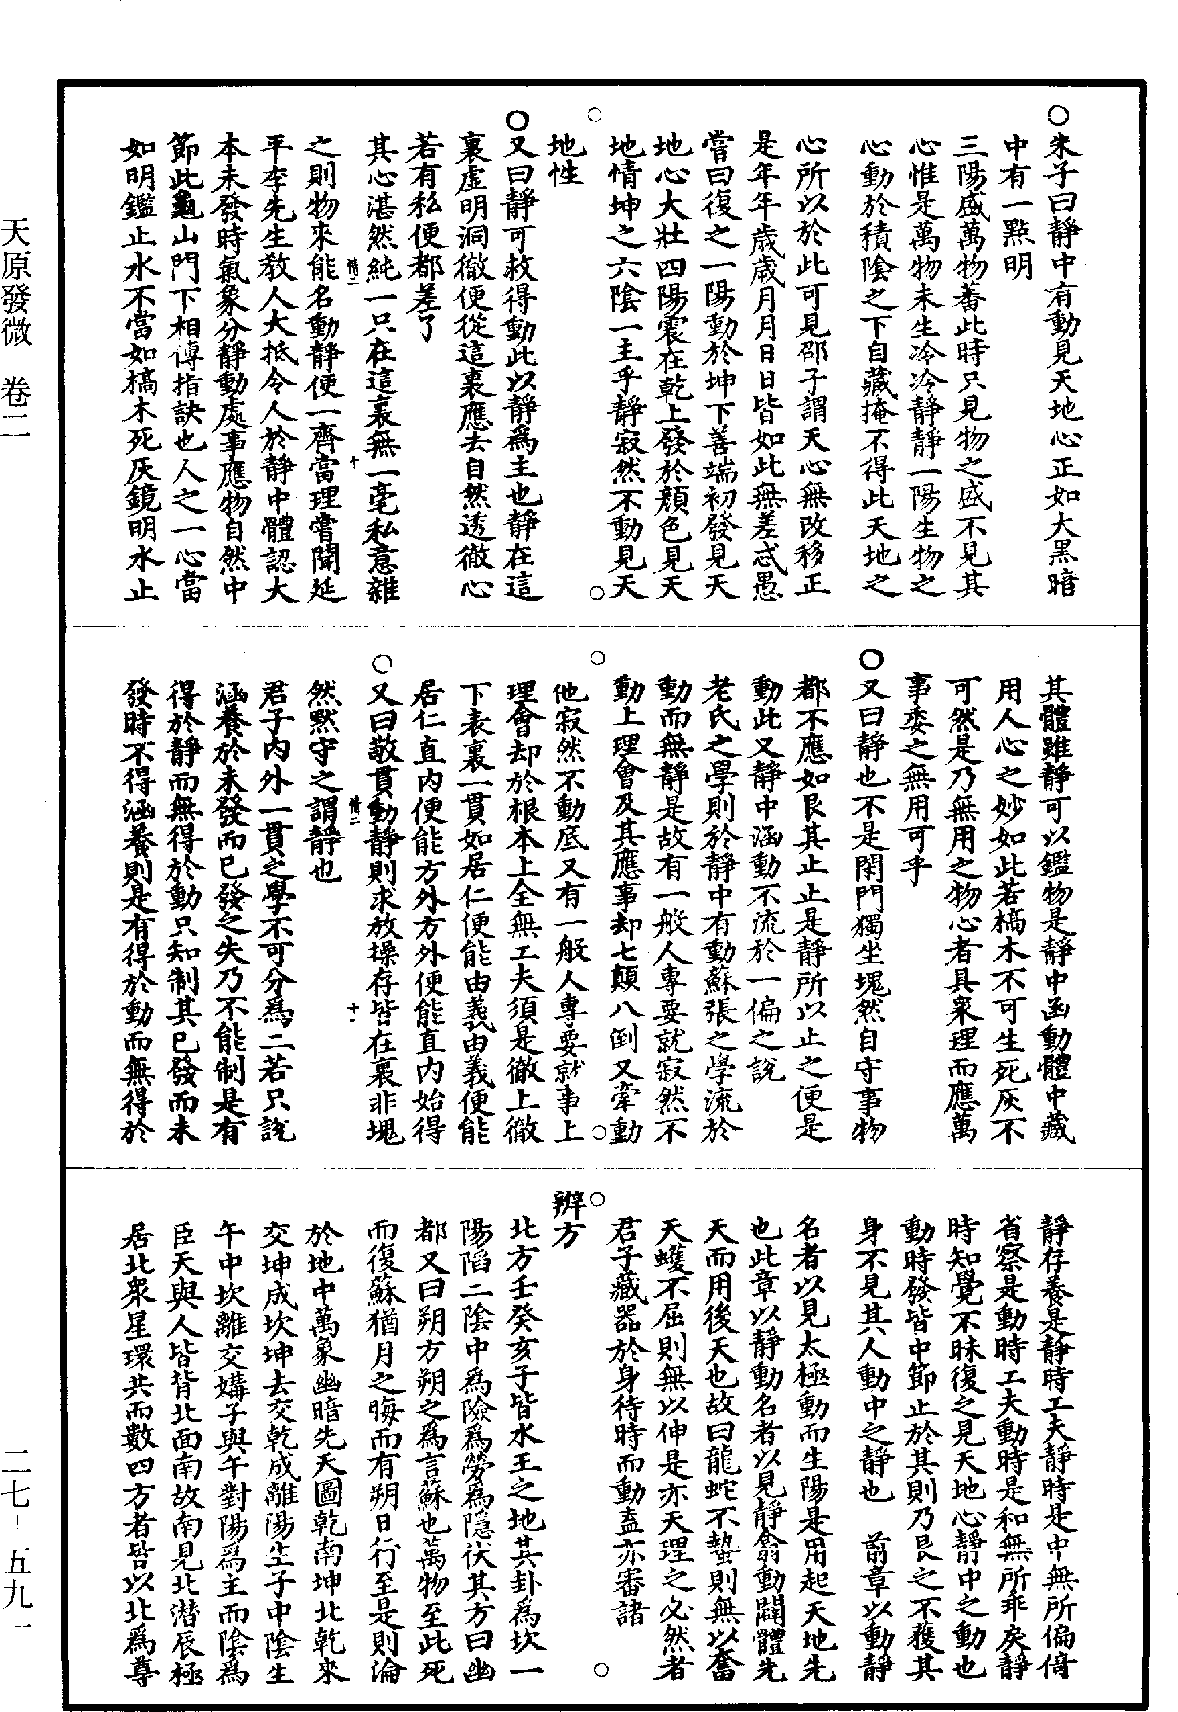 ○朱子曰靜中有動見天地心正如大黑暗
中有一點明
三陽盛萬物蕃此時只見物之盛不見其
心惟是萬物未生冷冷靜靜一陽生物之
心動於積陰之下自藏掩不得此天地之
心所以於此可見邵子謂天心無改移正
是年年歲歲月月日日皆如此無差忒愚
嘗曰復之一陽動於坤下善端初發見天
地心大壯四陽震在乾上發於顏色見天
地情坤之六陰一主乎靜寂然不動見天
地性
○又曰靜可救得動此以靜爲主也靜在這
裏虛明洞徹便從這裏應去自然透徹心
若有私便都差了
其心湛然純一只在這裏無一毫私意雜
之則物來能名動靜便一齊當理嘗聞延
平李先生教人大抵令人於靜中體認大
本未發時氣象分靜動處事應物自然中
節此龜山門下相傳指訣也人之一心當
如明鑑止水不當如槁木死灰鏡明水止
其體雖靜可以鑑物是靜中函動體中藏
用人心之妙如此若槁木不可生死灰不
可然是乃無用之物心者具衆理而應萬
事委之無用可乎
○又曰靜也不是閉門獨坐塊然自守事物
都不應如艮其止止是靜所以止之便是
動此又靜中涵動不流於一偏之說
老氏之學則於靜中有動蘇張之學流於
動而無靜是故有一般人專要就寂然不
動上理會及其應事却七顛八倒又牽動
他寂然不動底又有一般人專要就事上
理會却於根本上全無工夫須是徹上徹
下表裏一貫如居仁便能由義由義便能
居仁直內便能方外方外便能直內始得
○又曰敬貫動靜則求放操存皆在裏非塊
然默守之謂靜也
君子內外一貫之學不可分爲二若只說
涵養於未發而已發之失乃不能制是有
得於靜而無得於動只知制其已發而未
發時不得涵養則是有得於動而無得於
靜存養是靜時工夫靜時是中無所偏倚
省察是動時工夫動時是和無所乖戾靜
時知覺不昧復之見天地心靜中之動也
動時發皆中節止於其則乃艮之不獲其
身不見其人動中之靜也　前章以動靜
名者以見太極動而生陽是用起天地先
也此章以靜動名者以見靜翕動闢體先
天而用後天也故曰龍蛇不蟄則無以奮
天蠖不屈則無以伸是亦天理之必然者
君子藏器於身待時而動盍亦審諸
辨方
北方壬癸亥子皆水王之地其卦爲坎一
陽陷二陰中爲險爲勞爲隱伏其方曰幽
都又曰朔方朔之爲言蘇也萬物至此死
而復蘇猶月之晦而有朔日行至是則淪
於地中萬象幽暗先天圖乾南坤北乾來
交坤成坎坤去交乾成離陽生子中陰生
午中坎離交媾子與午對陽爲主而陰爲
臣天與人皆背北面南故南見北潛辰極
居北衆星環共而數四方者皆以北爲尊
天原發微　卷二
二七－五九一